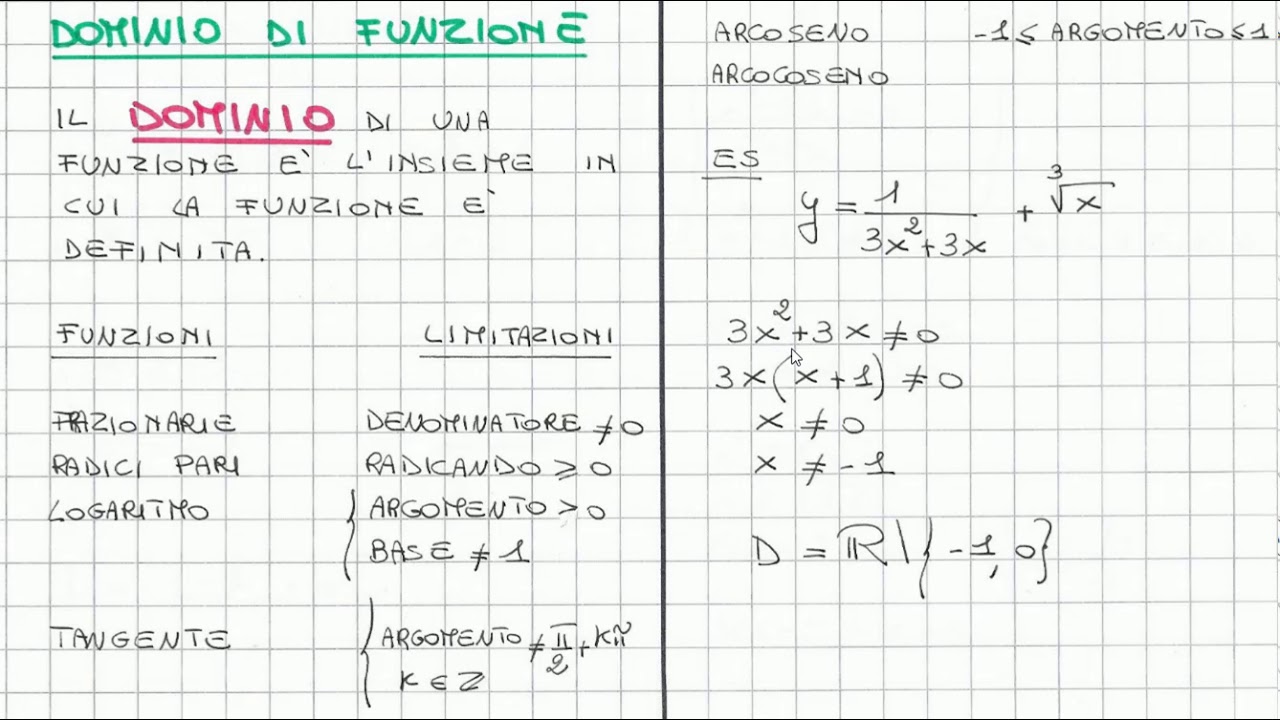 DOMINIO DI FUNZIONE
IL DOMINIO DI UNA
FUNZIONE E' L'INSIEME IN
CUI LA FUNZIONE E'
DEFINITA.
FUNZIONI LIMITAZIONI
FRAZIONARIE DENOMINATORE ≠ 0
RADICI PARI RADICANDO ⩾ 0
LOGARITMO { ARGOMENTO > 0
BASE ≠ 1
TANGENTE { ARGOMENTO ≠ π/2 + Kπ
K ∈ Z
ARCOSENO -1 ≤ ARGOMENTO ≤ 1
ARCOCOSENO
ES
y = 1/(3x²+3x) + ∛x
3x²+3x ≠ 0
3x(x+1) ≠ 0
x ≠ 0
x ≠ -1
D = ℝ\{-1,0}